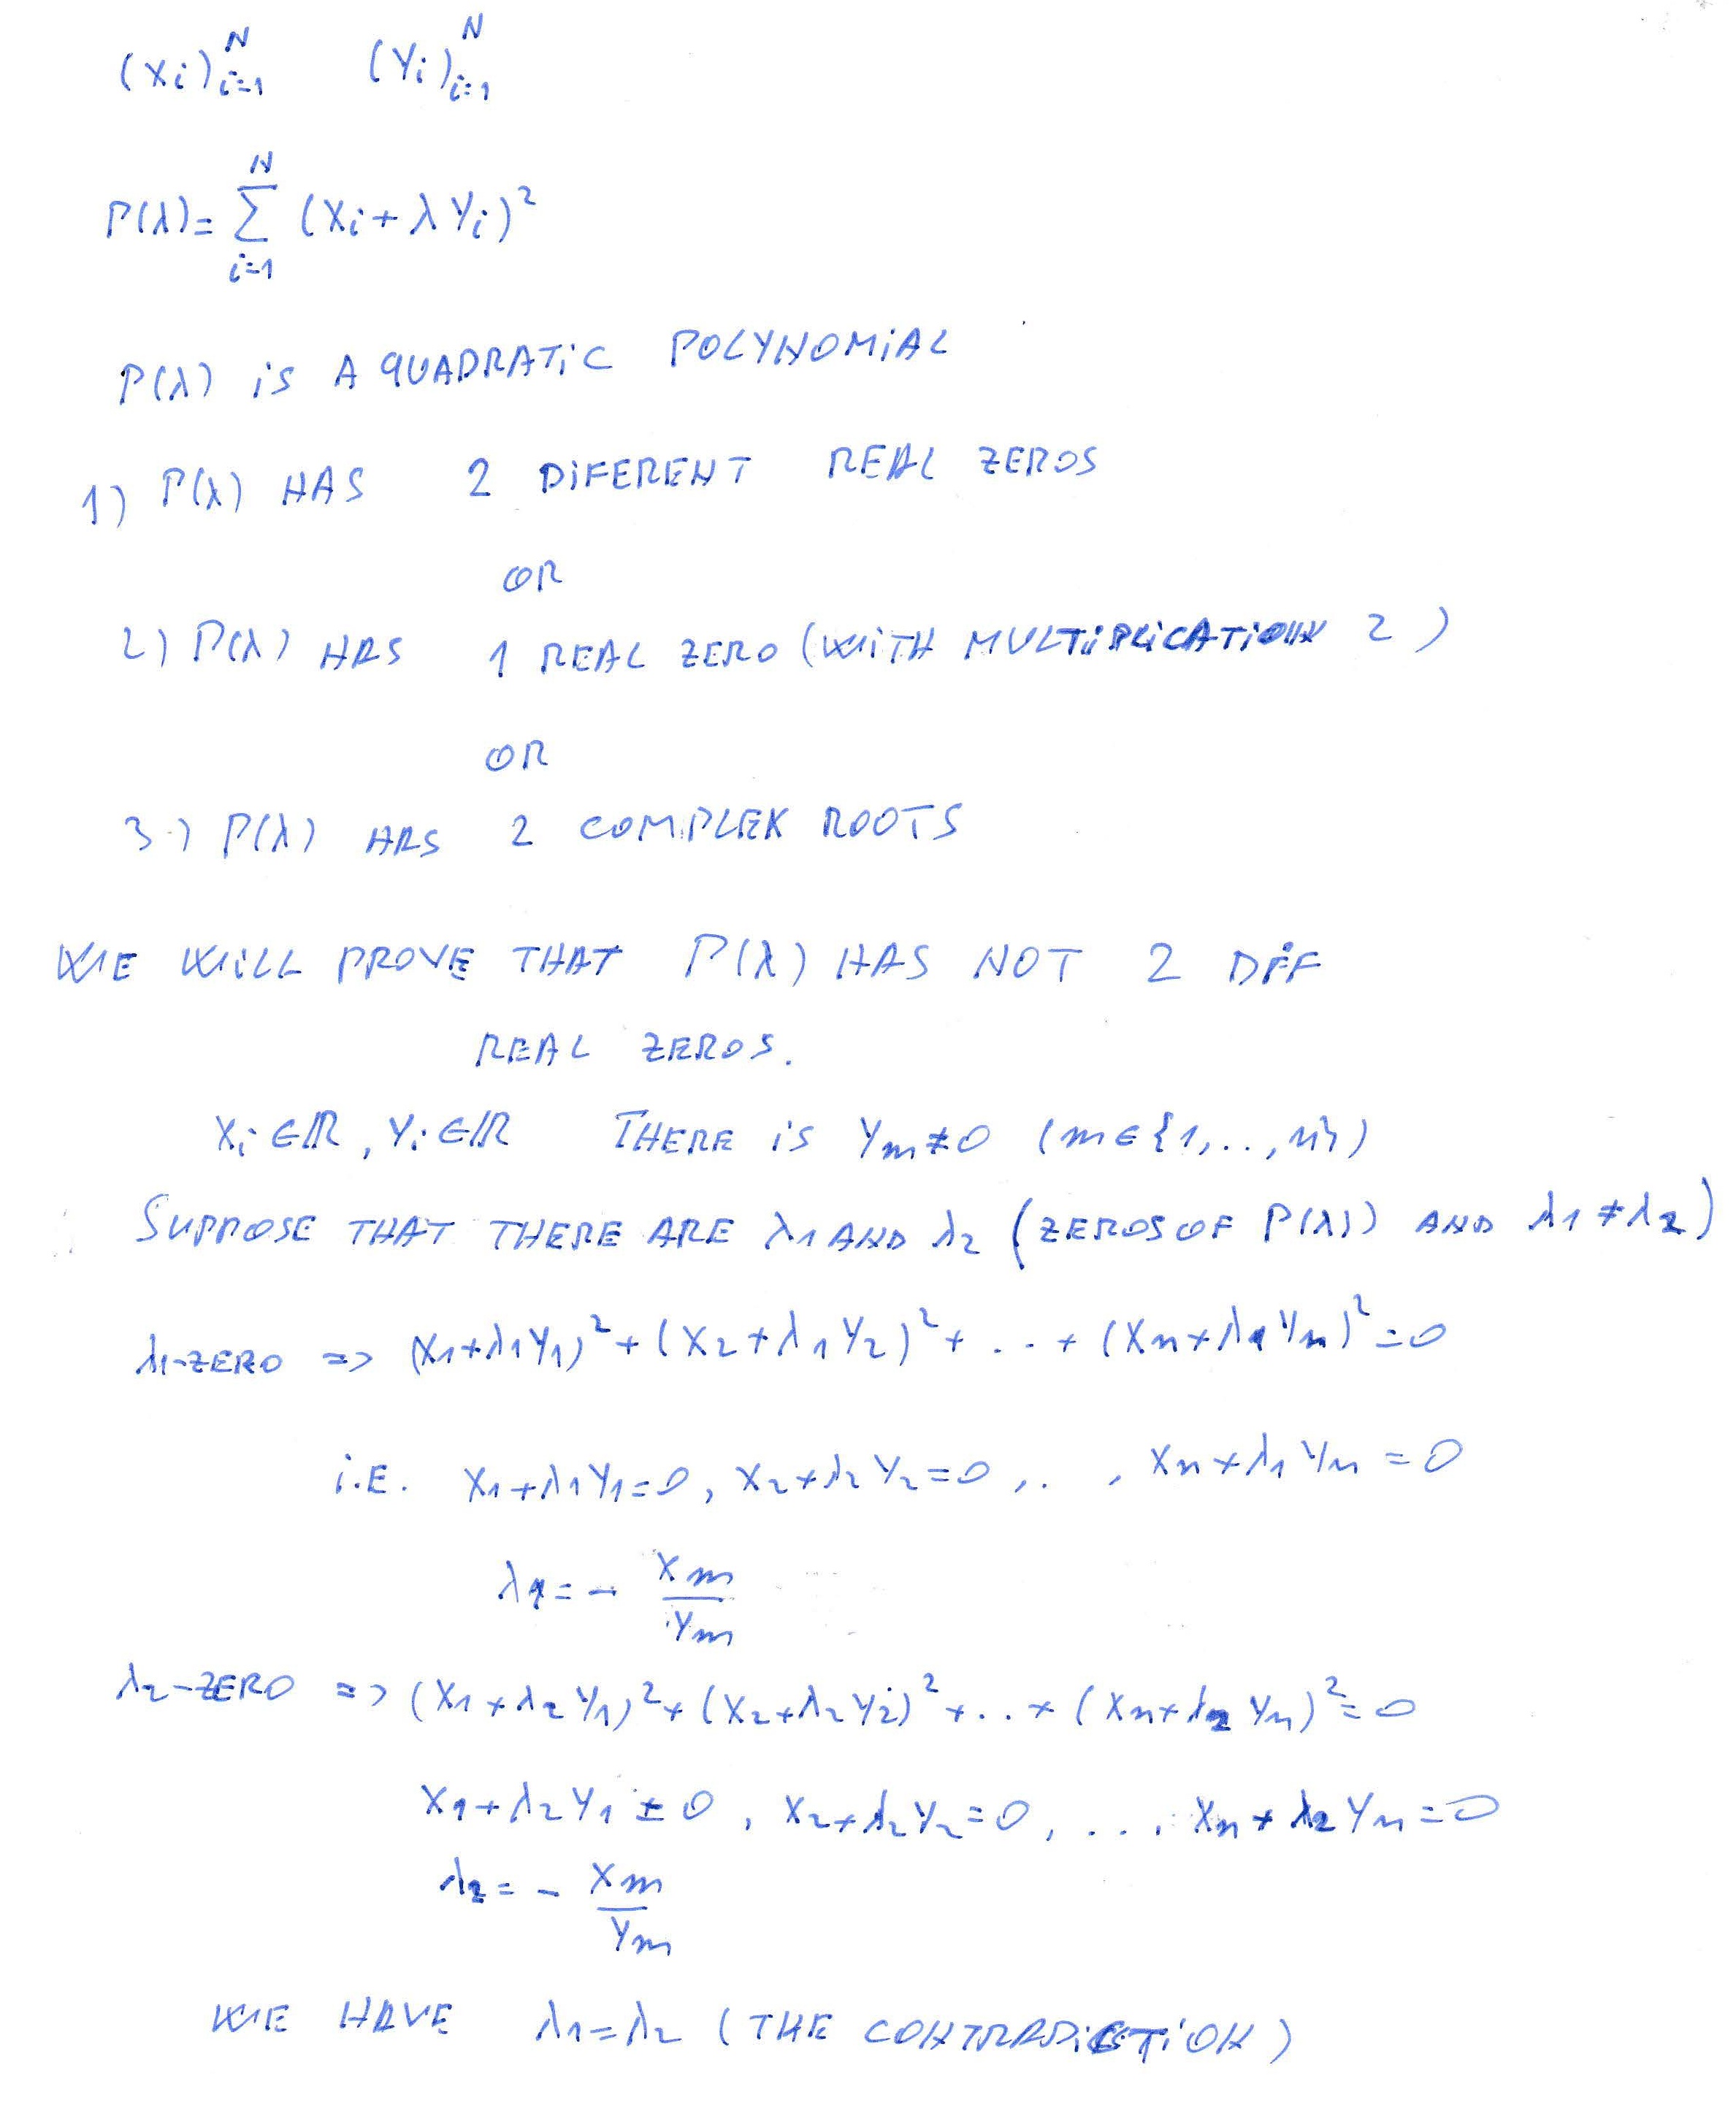 (Xi)_{i=1}^{N} (Yi)_{i=1}^{N}
P(λ)= \sum_{i=1}^{N} (Xi+λYi)^2
P(λ) iS A QUADRATiC POLYNOMiAL
1) P(λ) HAS 2 DiFERENT REAL ZEROS
OR
2) P(λ) HAS 1 REAL ZERO (WiTH MULTiPLiCATiON 2)
OR
3.) P(λ) HAS 2 COMPLEX ROOTS
WE WiLL PROVE THAT P(λ) HAS NOT 2 DiF
REAL ZEROS.
Xi∈ℝ, Yi∈ℝ THERE iS Ym≠0 (m∈{1,..,n})
SUPPOSE THAT THERE ARE λ1 AND λ2 (ZEROS OF P(λ)) AND λ1≠λ2)
λ1-ZERO => (X1+λ1Y1)^2+(X2+λ1Y2)^2+...+(Xn+λ1Yn)^2=0
i.E. X1+λ1Y1=0, X2+λ2Y2=0,.. , Xn+λ1Yn=0
λ1=- \frac{Xm}{Ym}
λ2-ZERO => (X1+λ2Y1)^2+(X2+λ2Y2)^2+..+(Xn+λ2Yn)^2=0
X1+λ2Y1=0, X2+λ2Y2=0, ... Xn+λ2Yn=0
λ2=- \frac{Xm}{Ym}
WE HAVE λ1=λ2 (THE CONTRADiCTiON)